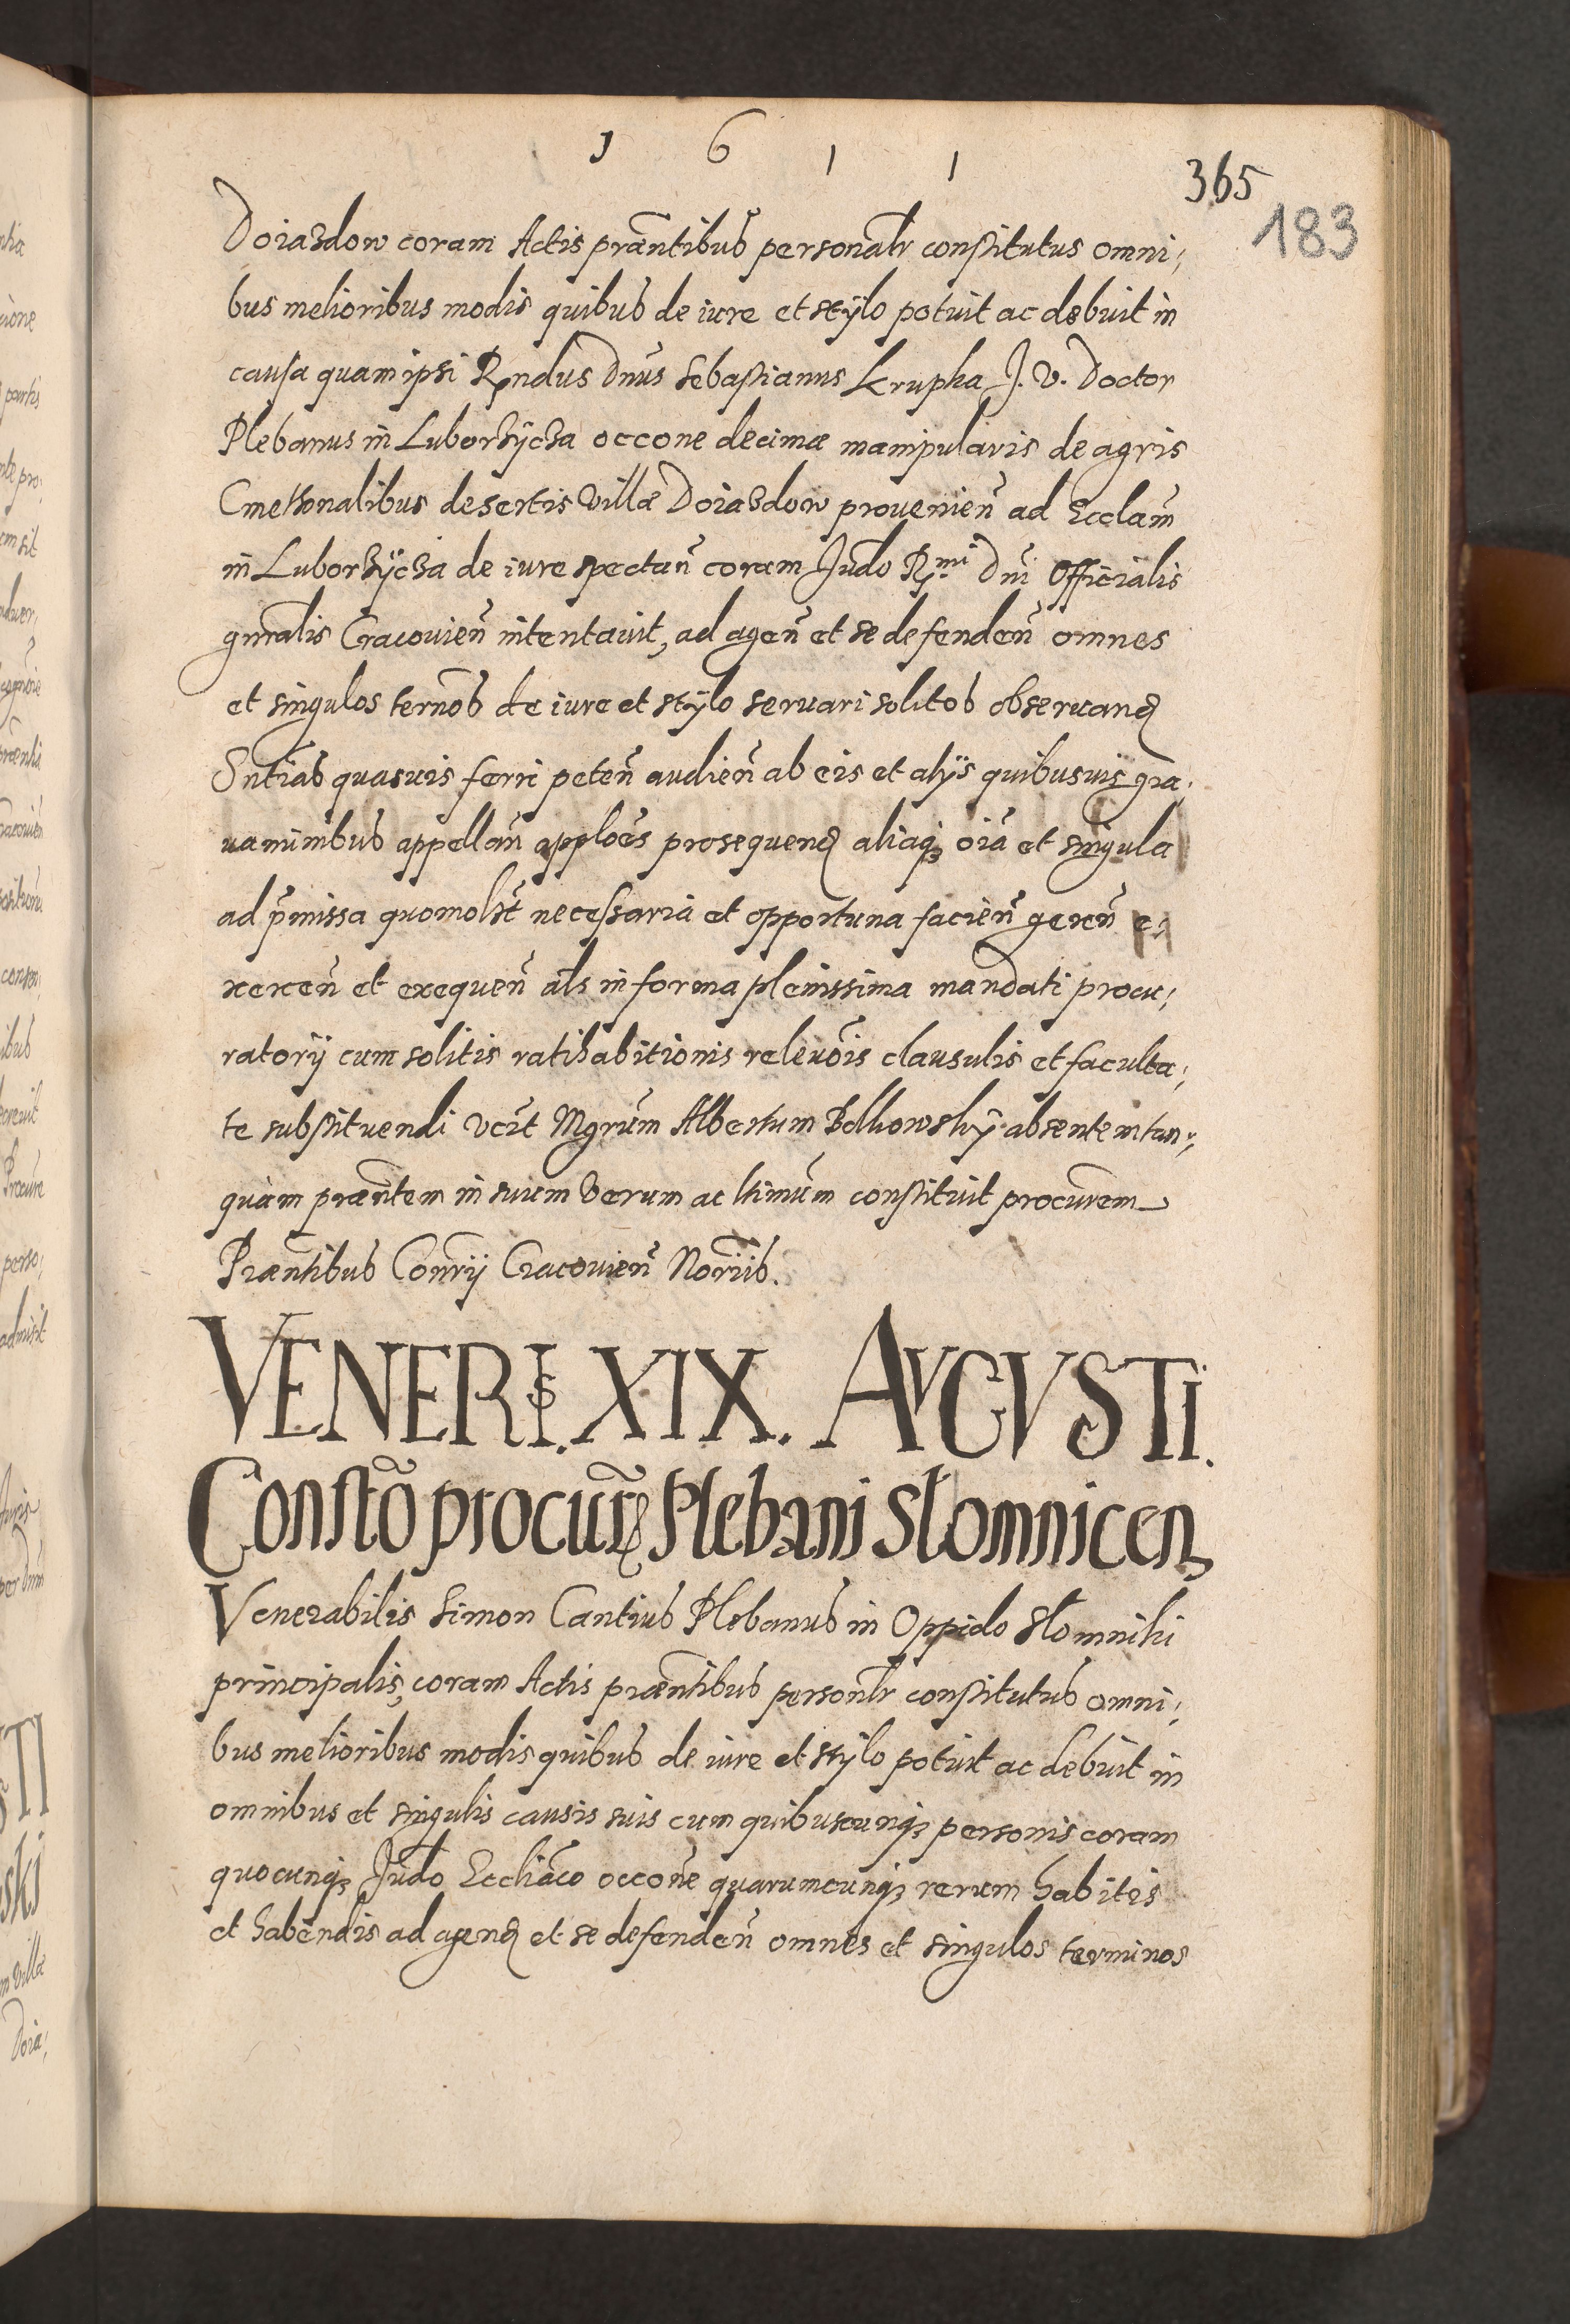 1 6 1 1
365
183
Doiazdow coram Actis præñtibus personalr constitutus omni;
bus melioribus modis quibus de iure et stÿlo potuit ac debuit in
causa quam ipsi Rndus Dnus Sebastianus Krupka J. V. Doctor
Plebanus in Luborzÿcza occone decimæ manipularis de agris
Cmethonalibus desertis Villæ Doiazdow provenieñ ad Ecclam
in Luborzÿcza de iure spectañ coram Judo R.mi Dni Officialis
gnralis Cracovieñ intentavit, ad ageñ et se defendeñ omnes
et singulos ternos de iure et stÿlo servari solitos observand
Sntias quasvis ferri peteñ audieñ ab eis et alÿs quibusvis gra;
vaminibus appellañ apploẽs prosequend aliaqꝫ oĩa et singula
ad p̃missa quomolbt necessaria et opportuna facieñ gereñ e;
xerceñ et exequeñ als in forma plenissima mandati procu;
ratorÿ cum solitis ratihabitionis relevõis clausulis et faculta;
te substituendi Vcit Mgrum Albertum Belkowskÿ absentem tan;
quàm præñtem in suum verum ac ltimum constituit procurem
Præñtibus Conrÿ Cracovieñ Norÿs.
VENERIS. XIX. AVGVSTi.
Constõ procurẽ Plebani Słomnicen
Venerabilis Simon Cantius Plebanus in Oppido Słomniki
principalis, coram Actis præñtibus personlr constitutus omni;
bus melioribus modis quibus de iure et stÿlo potuit ac debuit in
omnibus et singulis causis suis cum quibuscunqꝫ personis coram
quocunqꝫ Judo Eccliaco occone quarumcunqꝫ rerum habitis
et habendis ad agend et se defendeñ omnes et singulos terminos